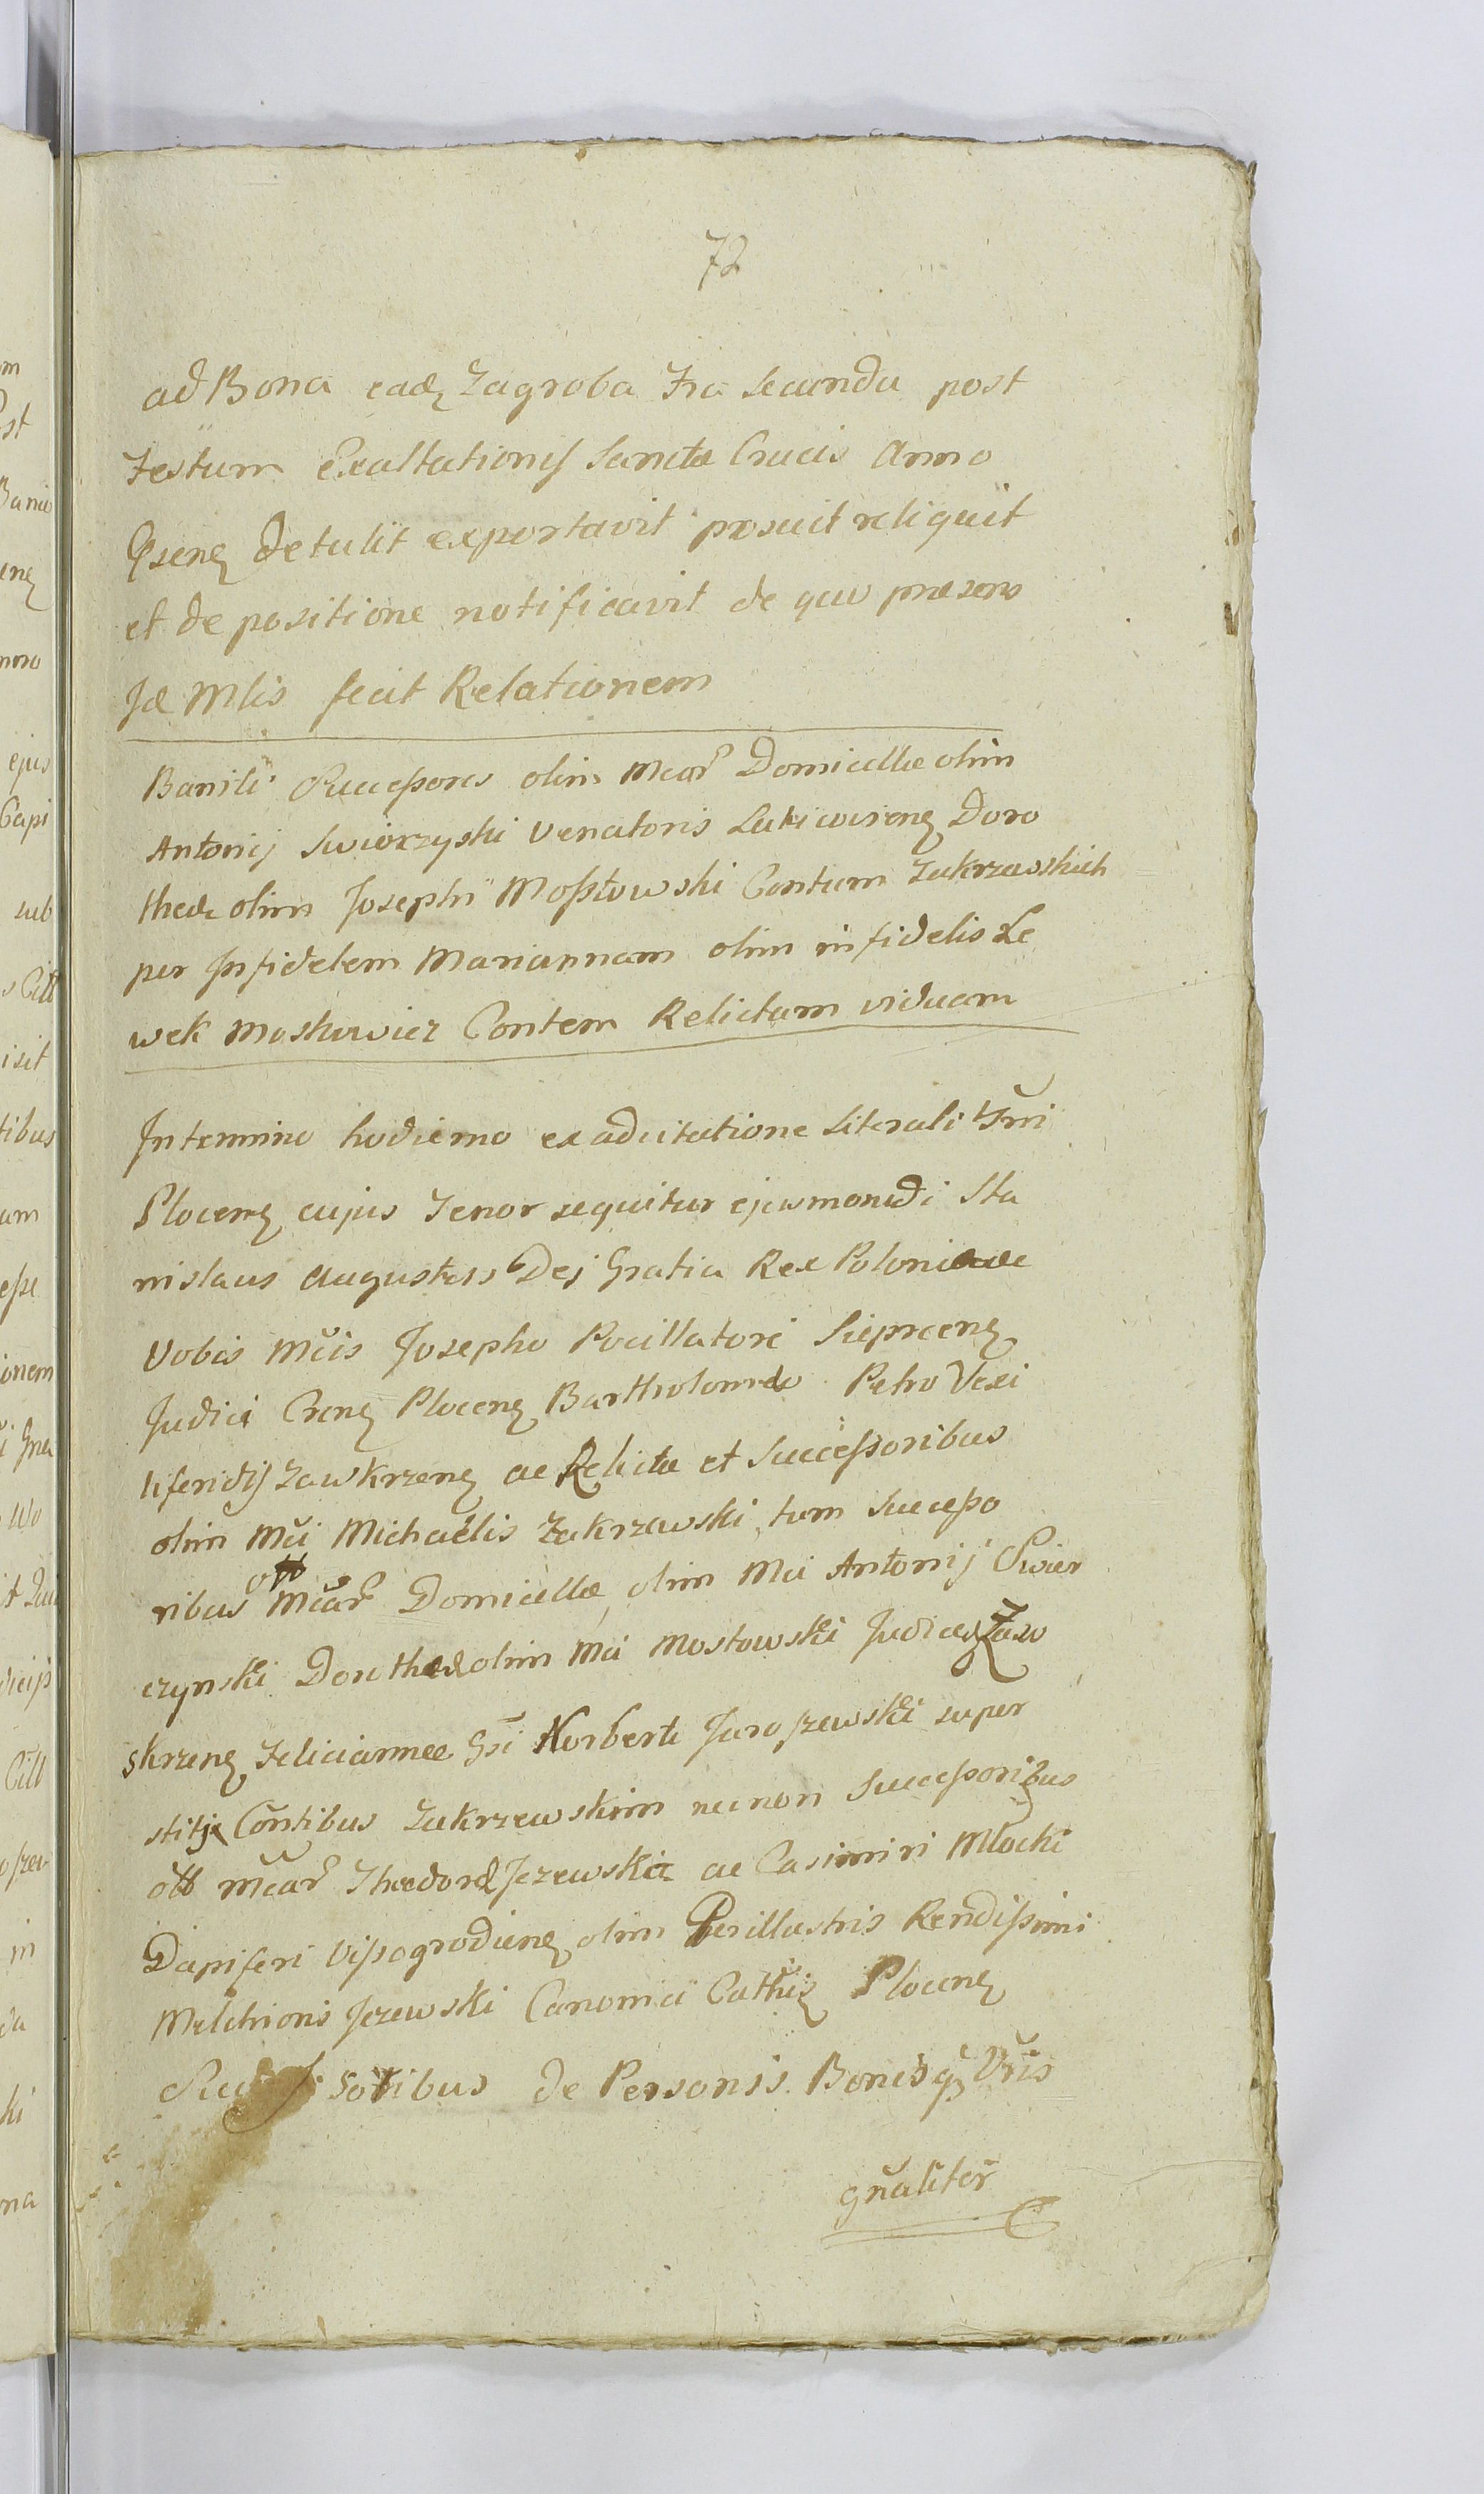 72
ad Bona eadz Zagroba Fra Secunda post
Festum Exaltationis Sanctæ Crucis Anno
Psenz detulit exportavit posuit reliquit
et de positione notificavit de quo præsens
Jd Mlis fecit Relationem
Baniti Successores olim Mcar Domicellæ olim
Antonij Swiorzyski Venatoris Doro
theæ olim Josephi Mosstowski Contum Zakrzewskich
per Infidelem Mariannam olim infidelis Le
wek Moskowicz Contem Relictam viduam
In termino hodierno ex adcitatione Literali
Plocenz cujus Tenor sequitur ejusmondi Sta
nislaus Augustus Dej Gratia Rex Poloniæ
Vobis Mcis Josepho Pocillatori Siepreenz
Judici Crenz Plocenz Bartholomeo Petro Vexi
liferidis Zawkrzenz ac Relictæ et Successoribus
olim Mci Michaelis Zakrzewski tum Successo
ribus ott Mcar Domicellæ olim Mci Antonij Swier
czynski Dorotheæ olim Mci Mostowski Judicis Zaw
skrzenz Feliciannæ Gsi Norberti Jaroszewski super
stitje Contibus Zakrzewskim necnon Successoribus
ott Mcar Theodoræ Jezewskie ac Casimiri Młocki
Dapiferi Vissogrodienz olim Perillustris Rendissimi
Melchioris Jezewski Canonici Cathlis Plocenz
soribus de Personis Bonisqz Vris
gnaliter